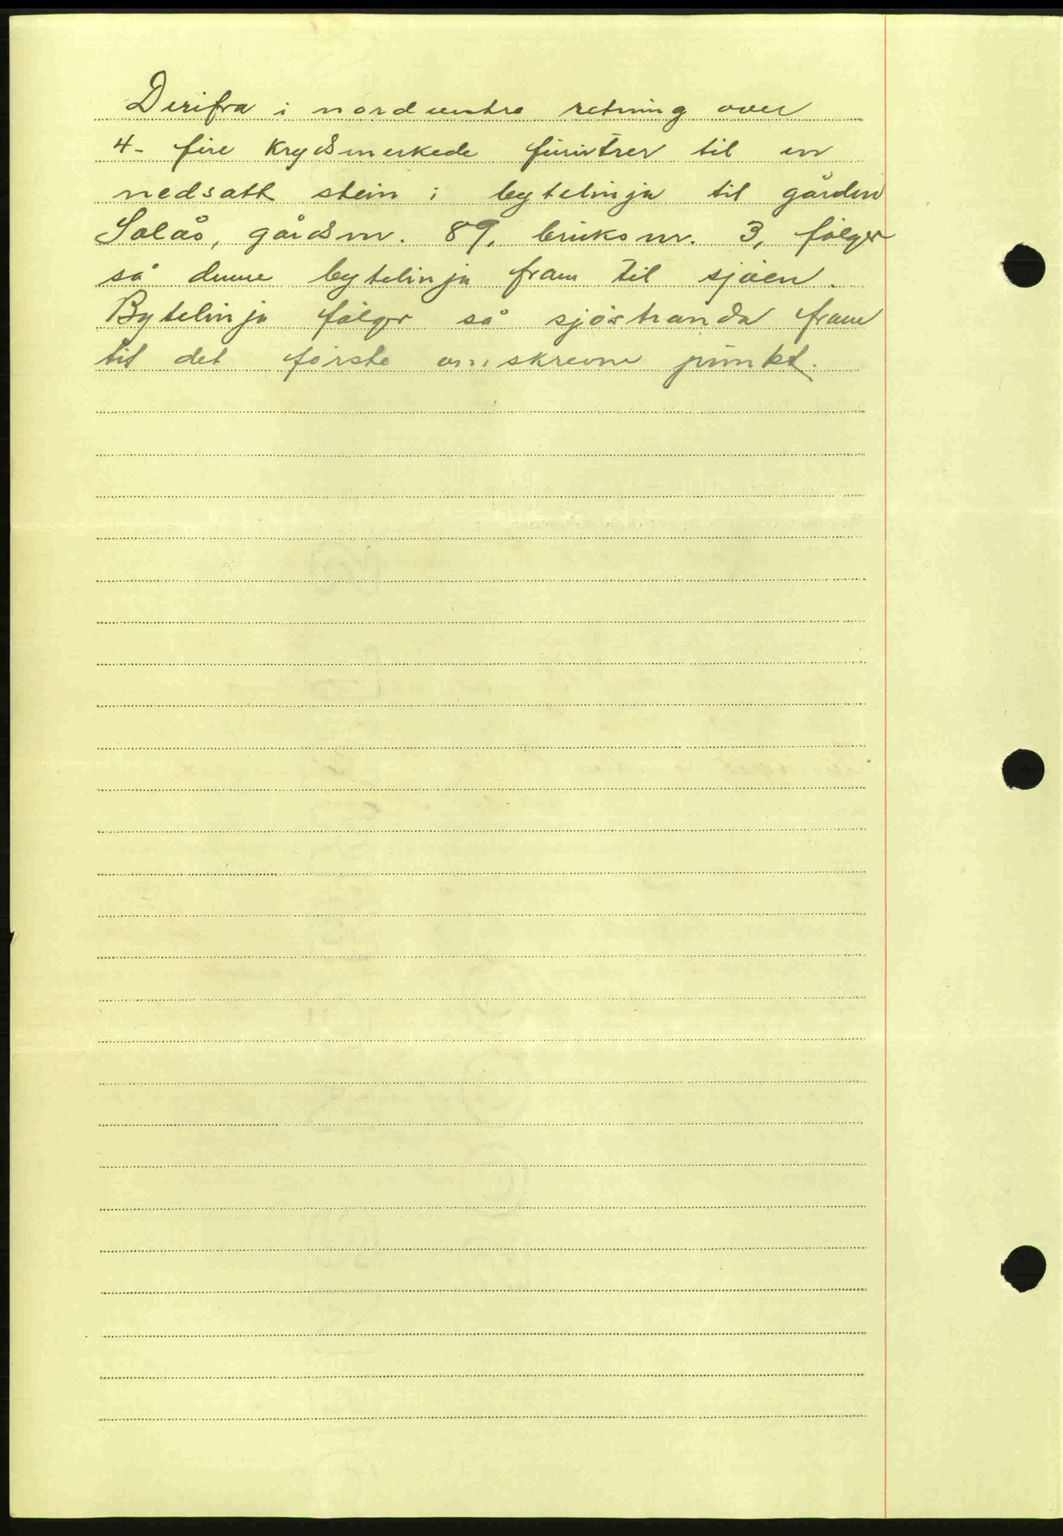 Derifra i nordvestre retning over
4- fire krydsmerkede furutrer til en
nedsatt stein i bytelinja til gården
Solås, gårdsnr. 89, bruksnr. 3, følger
så denne bytelinja fram til sjøen.
Bytelinja følger så sjøstranda fram
til det første omskrevne punkt.